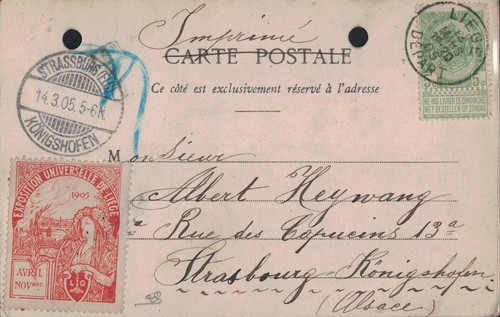 Imprimé
CARTE POSTALE
Ce côté est exclusivement réservé à l'adresse
STRASSBURG (ELS)
14.3.05. 5-6N.
KÖNIGSHOFEN
LIEGE
DEPART
5 5
NE PAS LIVRER LE DIMANCHE
NIET BESTELLEN OP ZONDAG
Monsieur
Albert Heywang
Rue des Capucins 13a
Strasbourg-Königshofen
(Alsace)
EXPOSITION UNIVERSELLE DE LIÈGE
1905
AVRIL
NOVBRE
LG